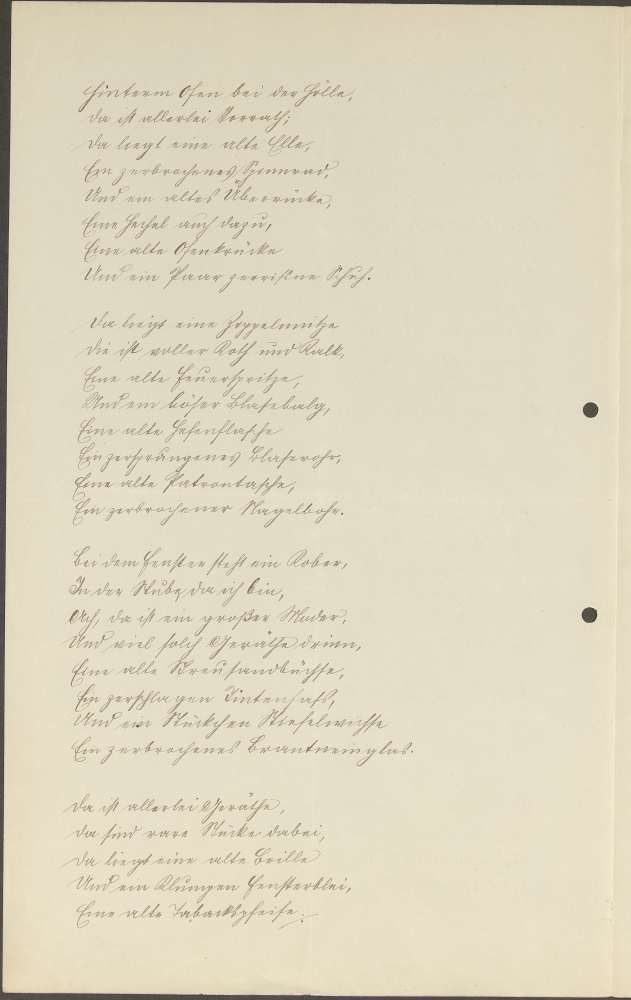 Hinterm Ofen bei der Hölle,
Da ist allerlei Vorrath;
Da liegt eine alte Elle,
Ein zerbrochenes Spinnrad,
Und ein altes Überrücke,
Eine Hechel auch dazu,
Eine alte Ofenkrücke
Und ein Paar zerrißne Schuh.

Da liegt eine Zoppelmütze
Die ist voller Koth und Kalk,
Eine alte Feuerspritze,
Und ein böser Blasebalg,
Eine alte Hefenflasche
Ein zersprungenes Blaserohr,
Eine alte Patrontasche,
Ein zerbrochener Nagelbohr.

Bei dem Fenster steht ein Kober,
In der Stube da ich bin,
Ach, da ist ein großer Moder,
Und viel solch Geräthe drinn,
Eine alte Streusandbüchse,
Ein zerschlagen Tintenfaß,
Und ein Stückchen Stiefelwichse
Ein zerbrochenes Brantweinglas.

Da ist allerlei Geräthe,
Da sind rare Stücke dabei,
Da liegt eine alte Brille
Und ein Klumpen Fensterblei,
Eine alte Tabackspfeife.